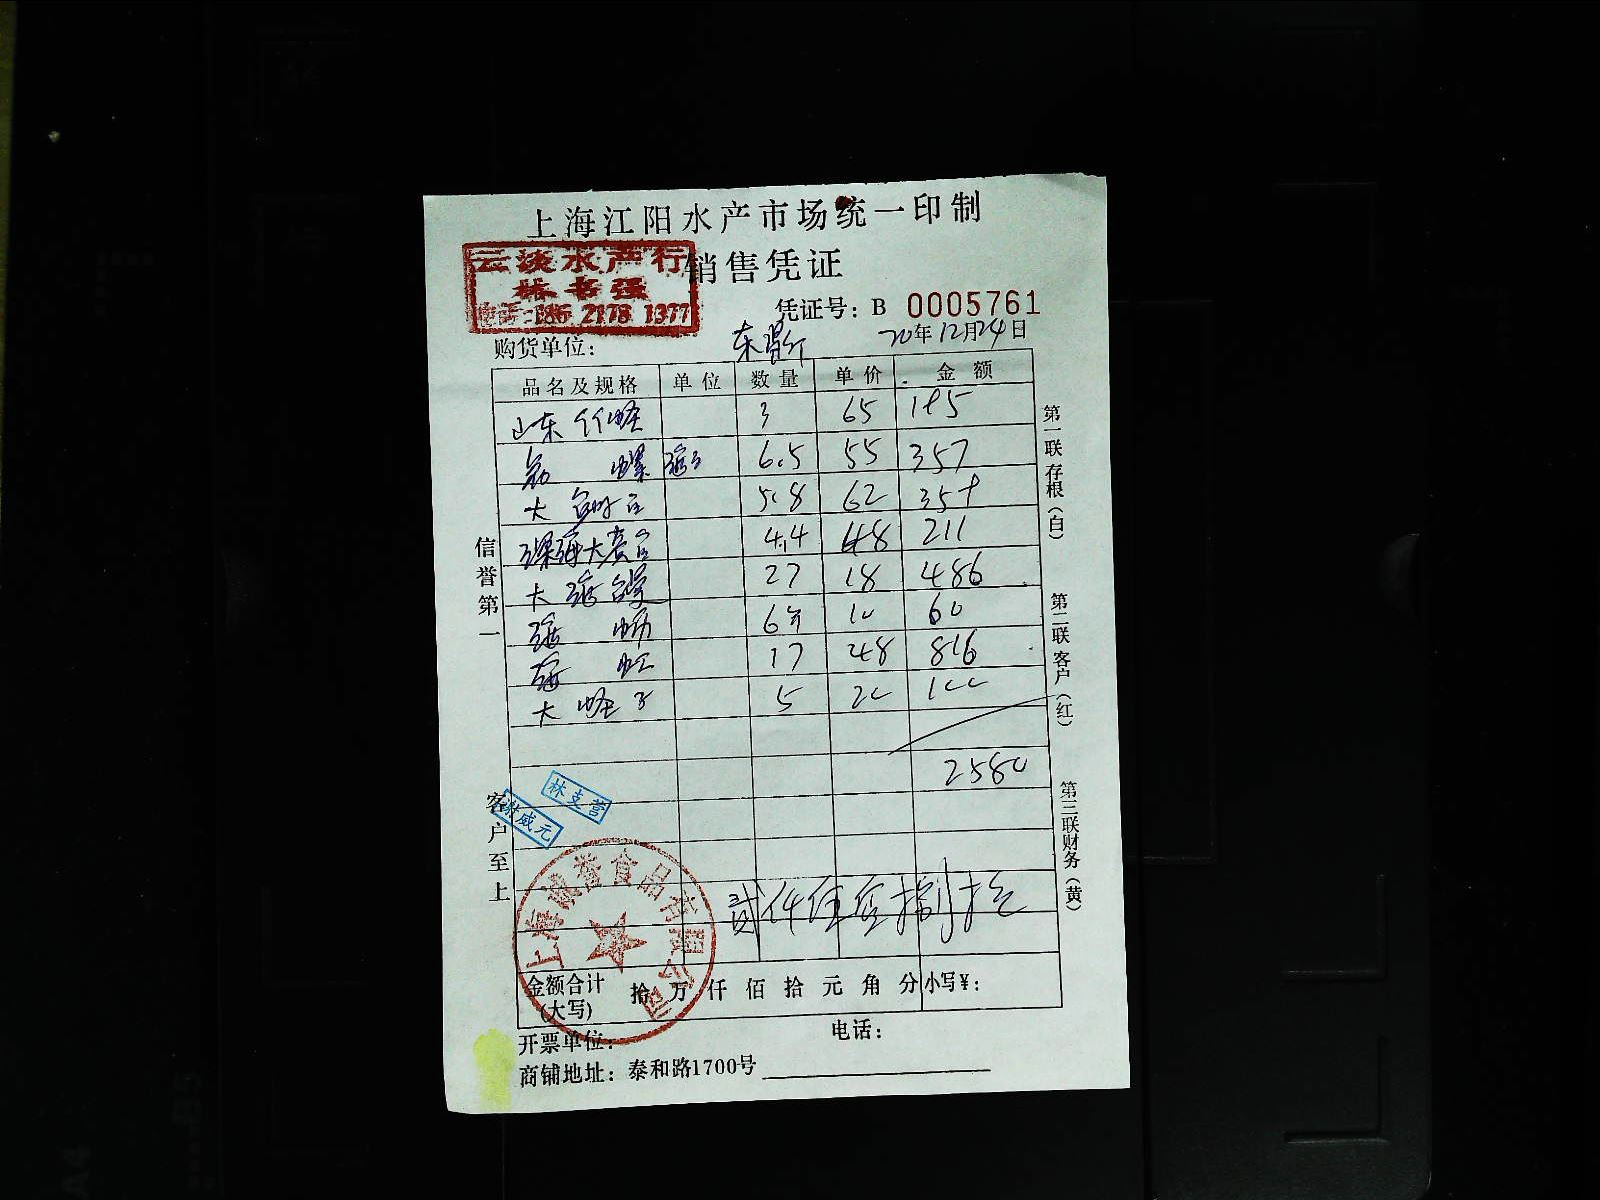 上海江阳水产市场统一印制
云淡水产行
销售凭证
林书强
电话:186 2178 1377
凭证号：B 0005761
购货单位：
20年12月24日
品名及规格 单位 数量 单价 金额
山东 蛏 3 65 195
螺 6.5 55 357
大 5.8 62 359
深海大黄 4.4 48 211
大海 27 18 486
海 6 10 60
海虹 17 48 816
大蛏子 5 20 100
2580
贰仟伍佰捌拾元
金额合计(大写) 拾 万 仟 佰 拾 元 角 分 小写¥：
开票单位： 电话：
商铺地址：泰和路1700号
信誉第一
客户至上
第一联存根（白）
第二联客户（红）
第三联财务（黄）
林支营
谢威元
上海诚誉食品有限公司